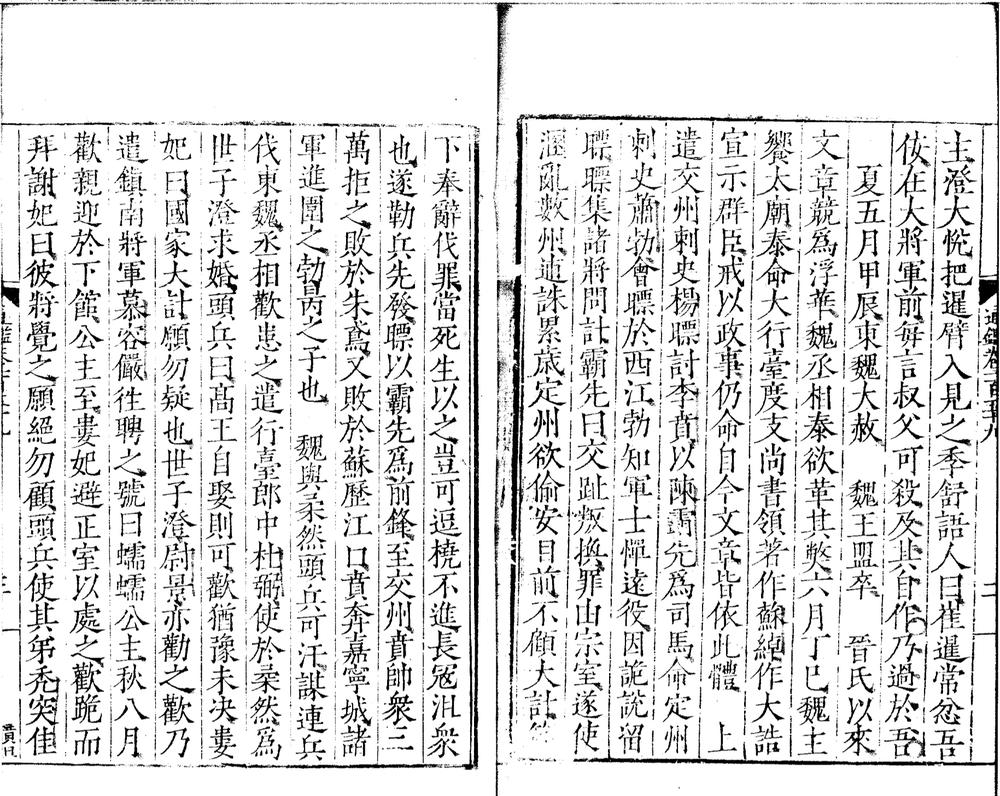 主澄大悅把暹臂入見之季舒語人曰崔暹常忿吾
佞在大將軍前每言叔父可殺及其自作乃過於吾
夏五月甲辰東魏大赦　魏王盟卒　晉氏以來
文章競爲浮華魏丞相泰欲革其獘六月丁巳魏主
饗太廟泰命大行臺度支尚書領著作蘇綽作大誥
宣示群臣戒以政事仍命自今文章皆依此體　上
遣交州刺史楊㬓討李賁以陳霸先爲司馬命定州
刺史蕭勃會㬓於西江勃知軍士憚遠役因詭說留
㬓㬓集諸將問計霸先曰交趾叛換罪由宗室遂使
溷亂數州逋誅累歲定州欲偷安目前不顧大計節
下奉辭伐罪當死生以之豈可逗橈不進長寇沮衆
也遂勒兵先發㬓以霸先爲前鋒至交州賁帥衆三
萬拒之敗於朱鳶又敗於蘇歷江口賁奔嘉寧城諸
軍進圍之勃昺之子也　魏與柔然頭兵可汗謀連兵
伐東魏丞相歡患之遣行臺郎中杜弼使於柔然爲
世子澄求婚頭兵曰高王自娶則可歡猶豫未決婁
妃曰國家大計願勿疑也世子澄尉景亦勸之歡乃
遣鎮南將軍慕容儼往聘之號曰蠕蠕公主秋八月
歡親迎於下館公主至婁妃避正室以處之歡跪而
拜謝妃曰彼將覺之願絕勿顧頭兵使其弟禿突佳